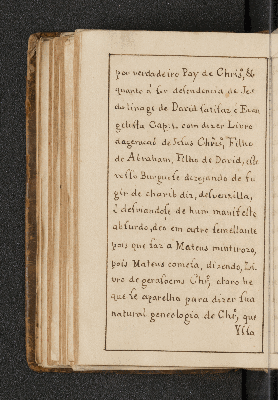 por verdadeiro Pay de Chrſ°, &
quanto à ſer deſcendencia de Jes
da linage de David ſatiſaz o Evan
geliſta Cap. 1. com dizer Livro
da geraçaõ de Jeſus Chrſ°, Filho
de Abraham, Filho de David,
veſſo Burgueſe dezejando de fu
gir de charib diz,
è deſviandoſe de hum manifeſto
abſurdo, deó em outro ſemellante
pois que faz a Mateus mintirozo,
pois Mateus comeſa, dizendo, Li
vro de geraſoems Chſ°, claro he
que ſe aparelha para dizer ſua
natural geneologia de Chſ°, que
Ylla